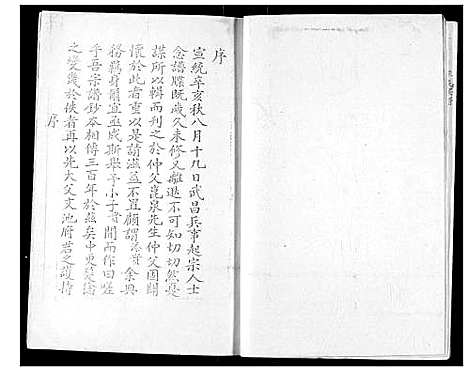 序
宣統辛亥秋八月十九日武昌兵事起宗人士
念譜牒既歲久未修又離遏不可知切切然是
謀所以輯而刋之於仲父崑泉先生仲父固關
懷於此者重以是請滋益不置顧謂
余與
務鶴身
爾宜亟成斯舉
小子
聞而作曰嗟
乎吾宗譜鈔本相傳三百年於茲矣中更
之變幾於佚者再以先大父文池府君之護持
序